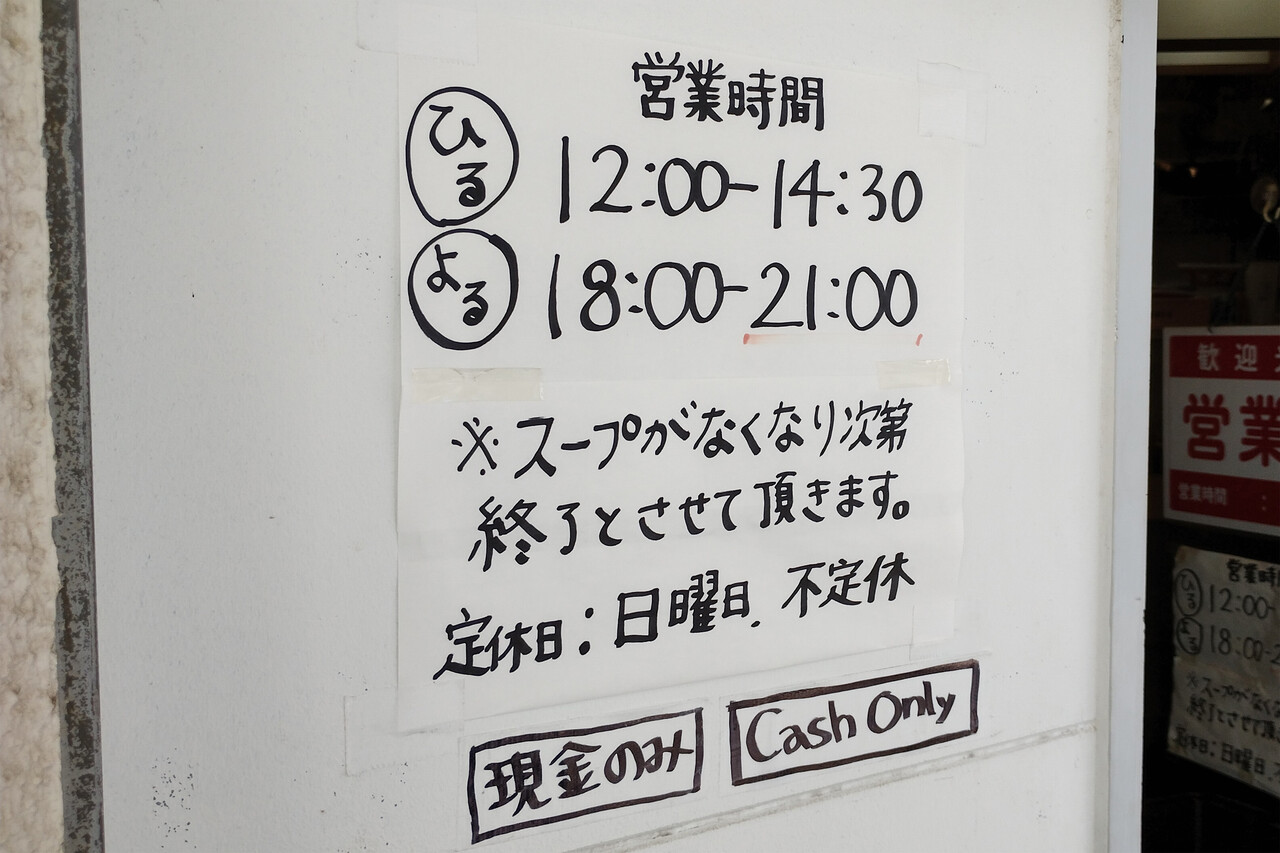 営業時間
ひる 12:00-14:30
よる 18:00-21:00
※スープがなくなり次第
終了とさせて頂きます。
定休日:日曜日. 不定休
現金のみ
Cash Only
歓迎
営業
営業時間 :
営業時
ひる 12:00-
よる 18:00-2
※スープがなく
終了とさせて頂
定休日:日曜日.